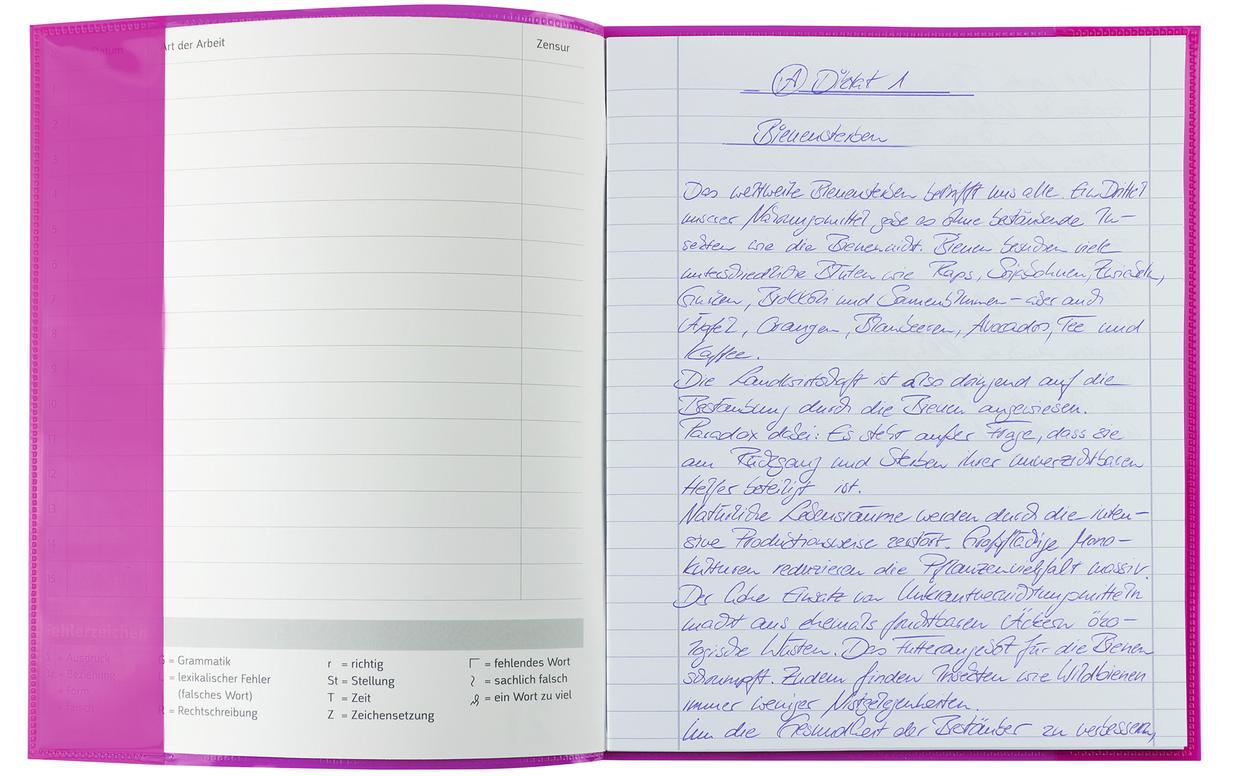 Datum
Art der Arbeit
Zensur
1
2
3
4
5
6
7
8
9
10
11
12
13
14
15
Fehlerzeichen
A = Ausdruck
Bz = Beziehung
= Form
= falsch
G = Grammatik
L = lexikalischer Fehler
(falsches Wort)
R = Rechtschreibung
r = richtig
St = Stellung
T = Zeit
Z = Zeichensetzung
= fehlendes Wort
= sachlich falsch
= ein Wort zu viel
A Diktat 1
Bienensterben
Das weltweite Bienensterben betrifft uns alle. Ein Drittel
unserer Nahrungsmittel gäbe es ohne bestäubende In-
sekten wie die Bienen nicht. Bienen besuchen viele
unterschiedliche Blüten wie Raps, Sojabohnen, Zwiebeln,
Gurken, Brokkoli und Sonnenblumen – aber auch
Äpfel, Orangen, Blaubeeren, Avocados, Tee und
Kaffee.
Die Landwirtschaft ist also dringend auf die
Bestäubung durch die Bienen angewiesen.
Paradox dabei: Es steht außer Frage, dass sie
am Rückgang und Sterben ihrer unverzichtbaren
Helfer beteiligt ist.
Natürliche Lebensräume werden durch die inten-
sive Produktionsweise zerstört. Großflächige Mono-
kulturen reduzieren die Pflanzenvielfalt massiv.
Der hohe Einsatz von Unkrautvernichtungsmitteln
macht aus ehemals fruchtbaren Äckern öko-
logische Wüsten. Das Futterangebot für die Bienen
schrumpft. Zudem finden Insekten wie Wildbienen
immer weniger Nistgelegenheiten.
Um die Gesundheit der Bestäuber zu verbessern,